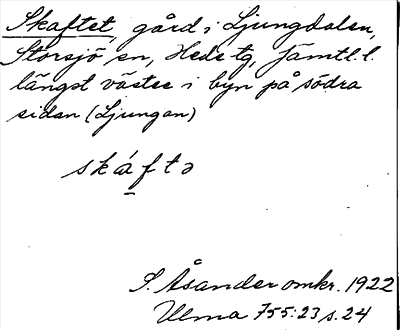 Skaftet, gård i Ljungdalen,
Storsjö sn, Hede tg, Jämtl. l.
längst väster i byn på södra
sidan (Ljungan)
skáftə
S. Åsander omkr. 1922
Ulma 755:23 s. 24